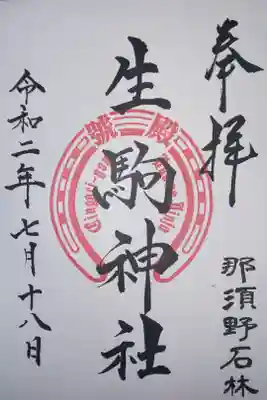 奉拝
那須野石林
生駒神社
殿號
令和二年七月十八日